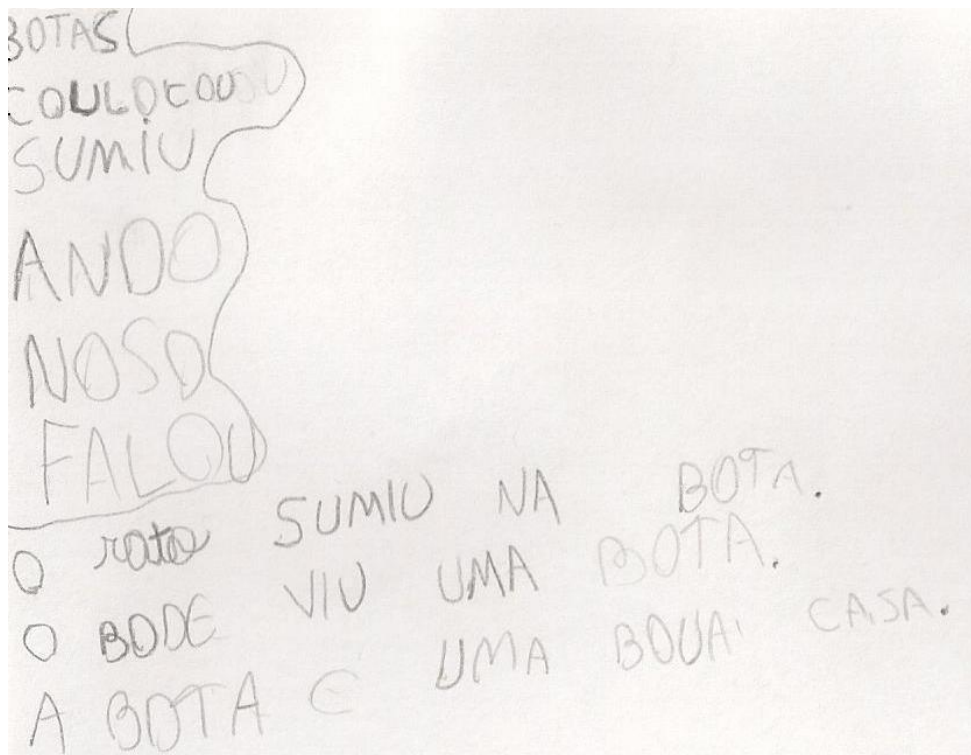 BOTAS
COULOCOU
SUMIU
ANDO
NOSO
FALOU
O rato SUMIU NA BOTA.
O BODE VIU UMA BOTA.
A BOTA E UMA BOUA CASA.